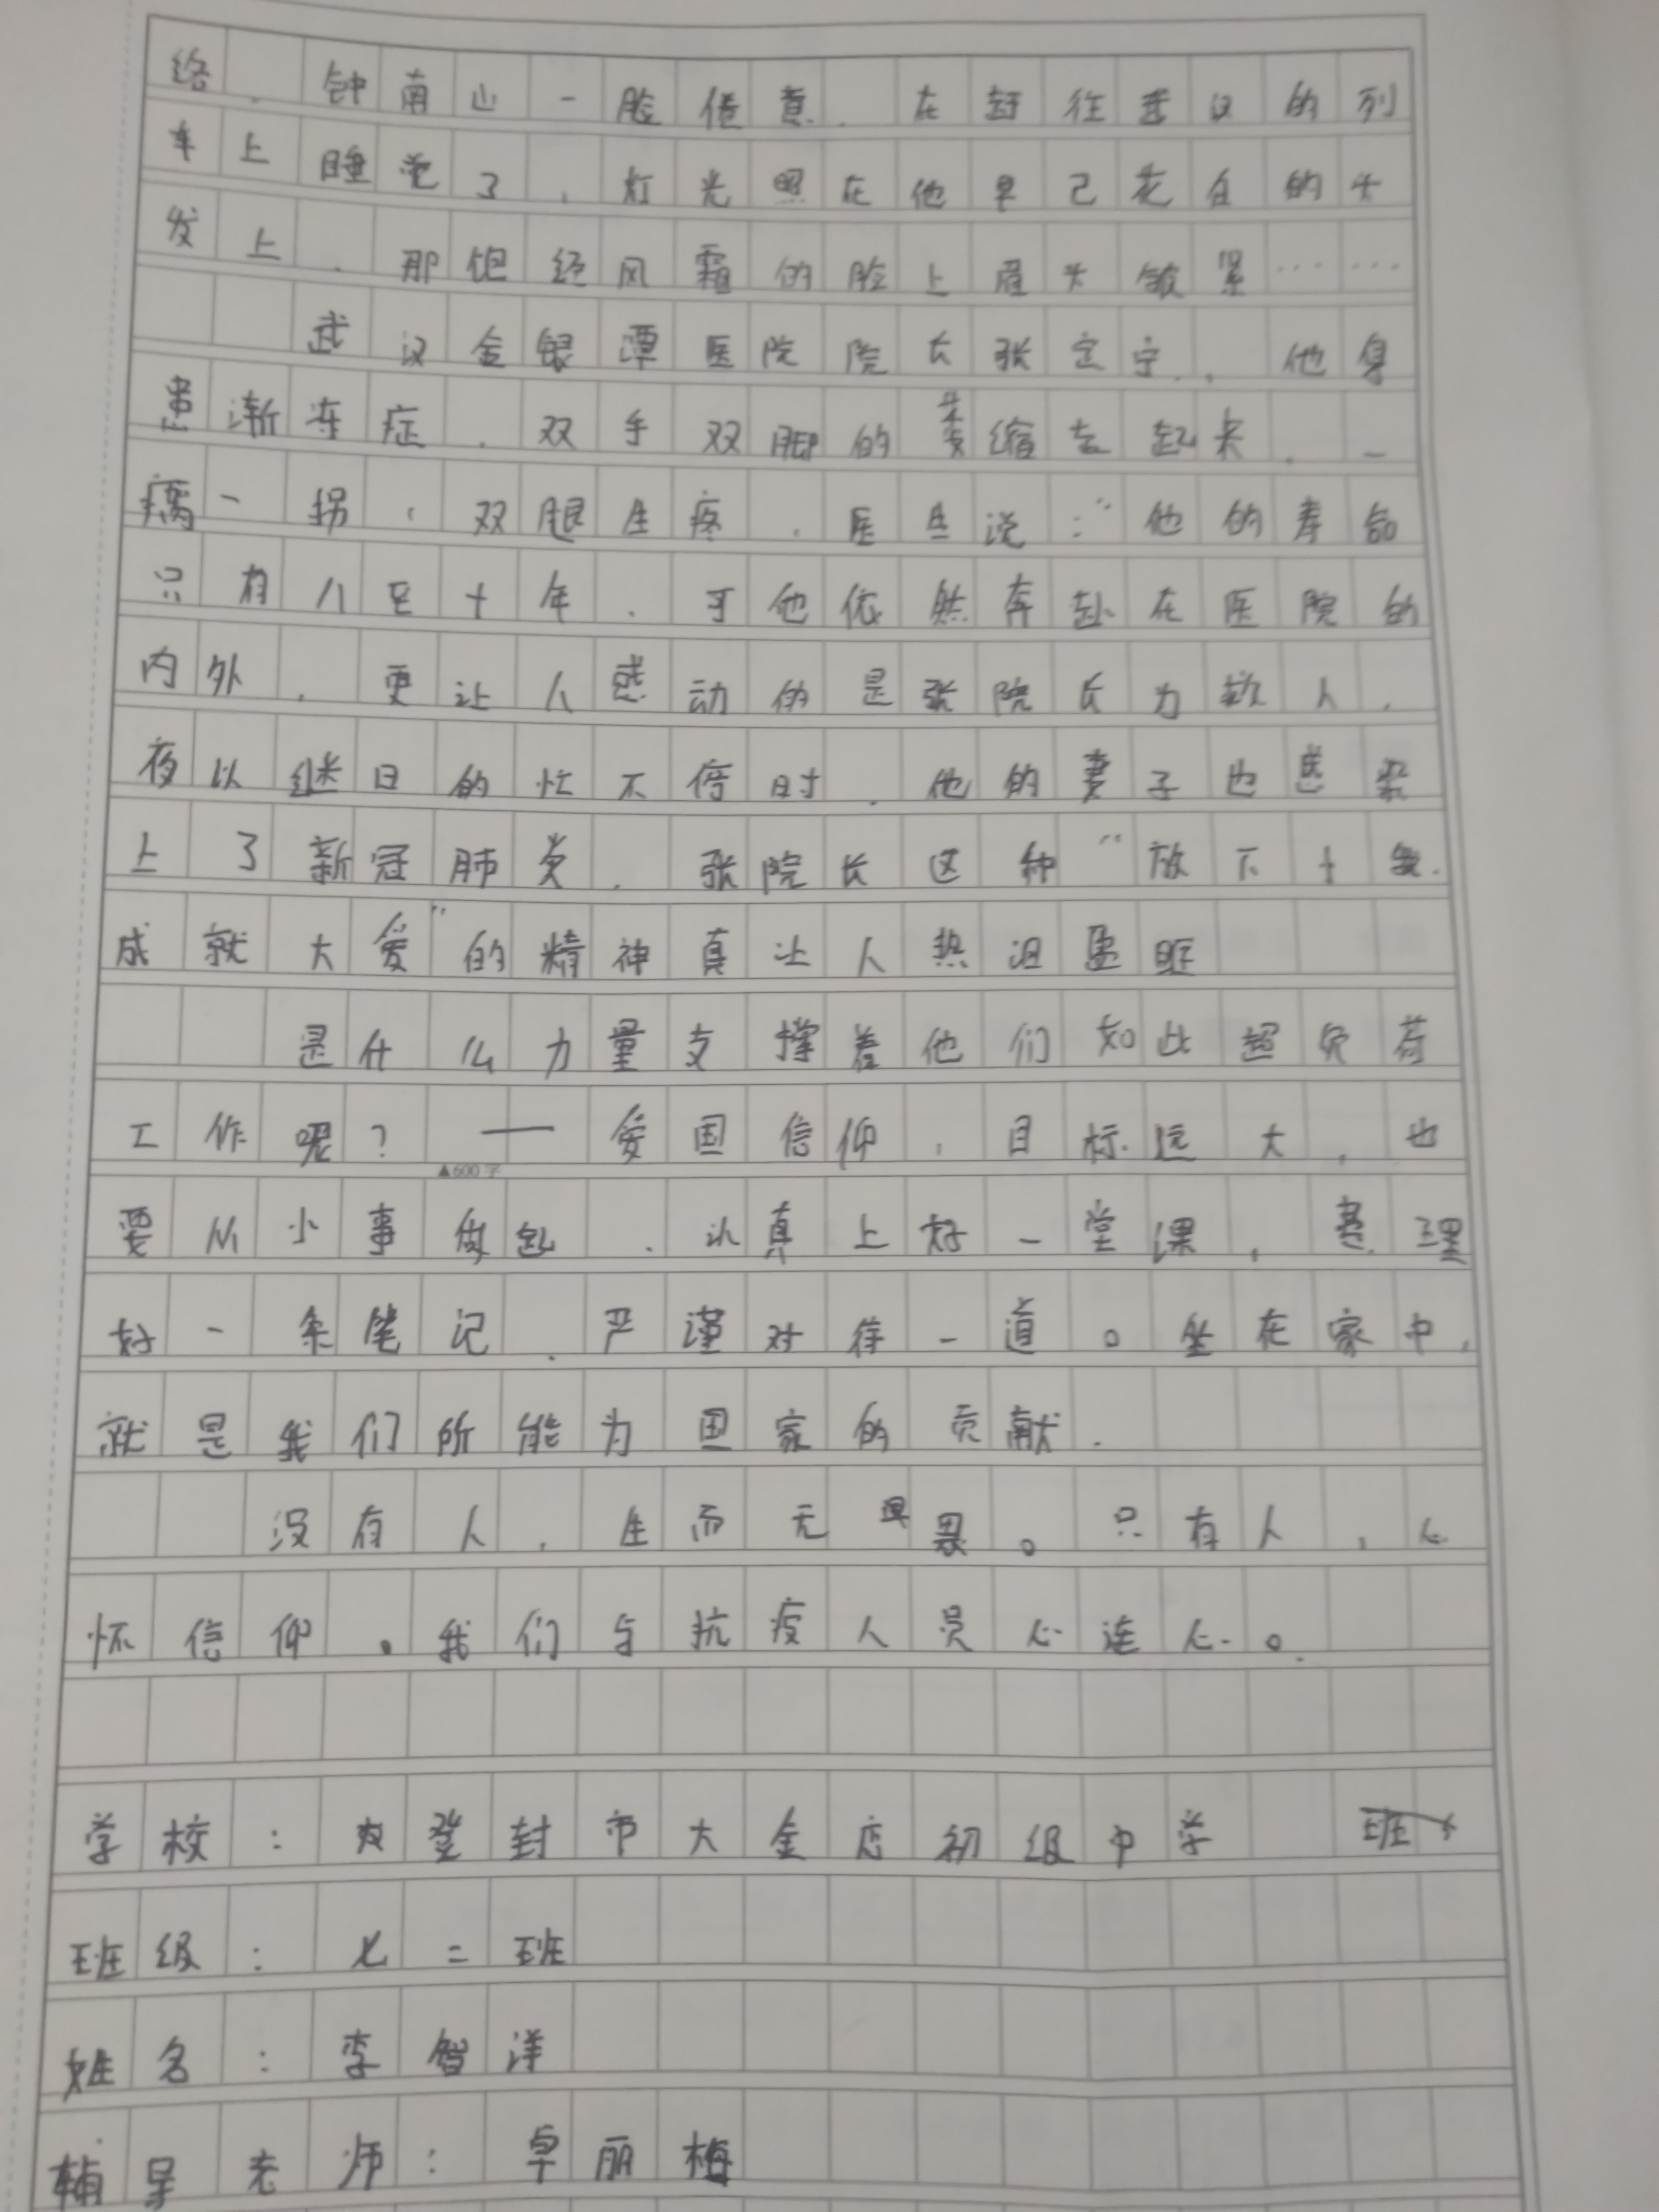 络，钟南山一脸倦意，在赶往武汉的列
车上睡觉了，灯光照在他早已花白的头
发上，那饱经风霜的脸上眉头皱紧……
武汉金银潭医院院长张定宇，他身
患渐冻症，双手双脚的萎缩起来，一
瘸一拐，双腿生疼，医生说：“他的寿命
只有八至十年，可他依然奔赴在医院的
内外，更让人感动的是张院长为救人，
夜以继日的忙不停时，他的妻子也感染
上了新冠肺炎，张院长这种“放下小我，
成就大爱”的精神真让人热泪盈眶
是什么力量支撑着他们如此超负荷
工作呢？——爱国信仰，目标远大，也
▲600字
要从小事做起，认真上好一堂课，整理
好一条笔记，严谨对待一道。坐在家中，
就是我们所能为国家的贡献．
没有人，生而无畏。只有人，心
怀信仰。我们与抗疫人员心连心。
学校：登封市大金店初级中学 班
班级：七二班
姓名：李智洋
辅导老师：卓丽梅